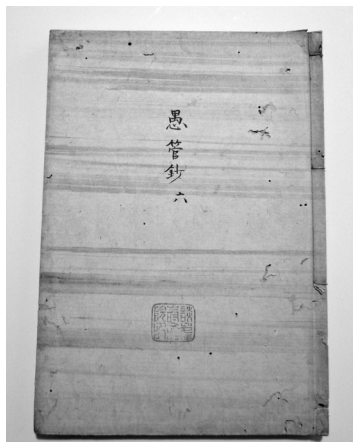 愚管鈔 六